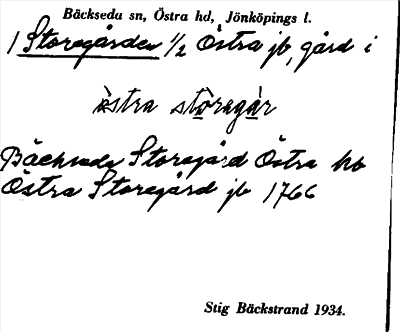 Bäckseda sn, Östra hd, Jönköpings l.
1 Storegården 1/2 Östra jb, gård i
östra storegår
Bäckseda Storegård Östra hb
Östra Storegård jb 1766
Stig Bäckstrand 1934.